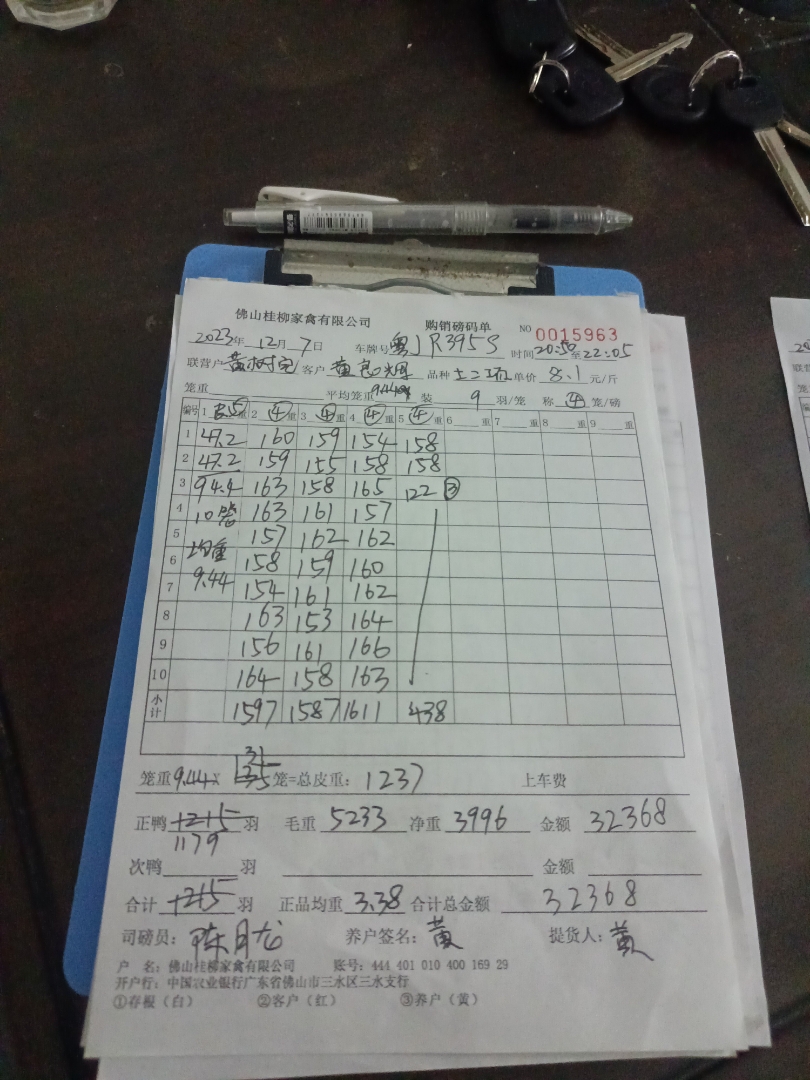 佛山桂柳家禽有限公司 购销磅码单 NO 0015963
2023年 12月 7日 车牌号 粤JR3955 时间 20:50 至 22:05
联营户 黄树 客户 黄 品种 土二 单价 8.1 元/斤
笼重 平均笼重 9.44 装 9 羽/笼 称 ④ 笼/磅
编号 1 ⑤ 重 2 ④ 重 3 ④ 重 4 ④ 重 5 ④ 重 6 重 7 重 8 重 9 重
1 47.2 160 159 154 158
2 47.2 159 155 158 158
3 94.4 163 158 165 122 ③
4 10笼 163 161 157
5 均重 157 162 162
6 9.44 158 159 160
7 154 161 162
8 163 153 164
9 156 161 166
10 164 158 163
小计 1597 1587 1611 438
31
笼重 9.44 x 135 笼=总皮重: 1237 上车费
正鸭 1215 羽 毛重 5233 净重 3996 金额 32368
1179
次鸭 羽 金额
合计 1215 羽 正品均重 3.38 合计总金额 32368
司磅员: 陈月龙 养户签名: 黄 提货人: 黄
户 名: 佛山桂柳家禽有限公司 账号: 444 401 010 400 169 29
开户行: 中国农业银行广东省佛山市三水区三水支行
①存根（白） ②客户（红） ③养户（黄）